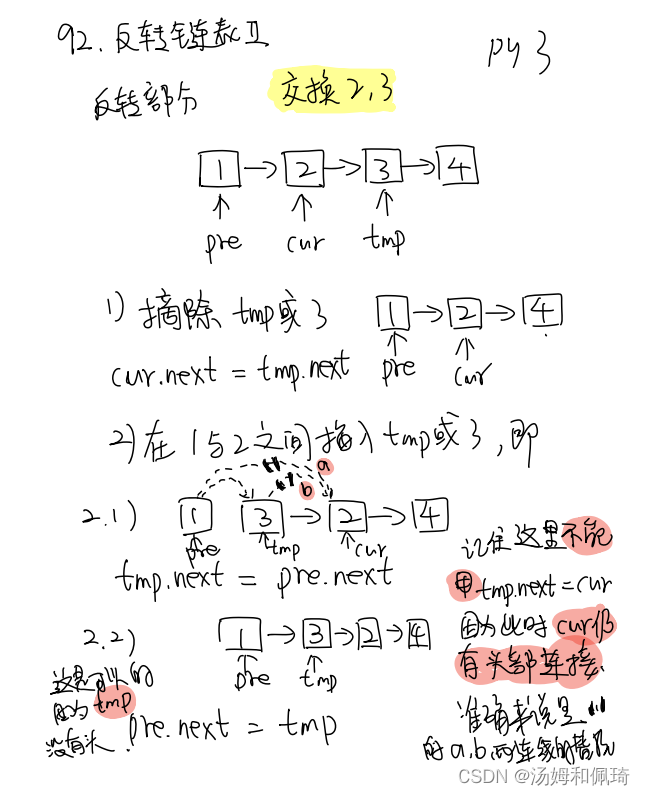 92. 反转链表II
py3
反转部分
交换2,3
1 → 2 → 3 → 4
pre cur tmp
1) 摘除 tmp或3
1 → 2 → 4
cur.next = tmp.next
pre cur
2) 在1与2之间插入tmp或3,即
a
b
2.1)
1 3 → 2 → 4
pre tmp cur
tmp.next = pre.next
记住这里不能
用tmp.next=cur
因为此时cur仍
有头部连接.
准确来说是"
的a,b两连线的
2.2)
1 → 3 → 2 → 4
pre tmp
这里可以的
因为tmp
没有头.
pre.next = tmp
CSDN @汤姆和佩琦